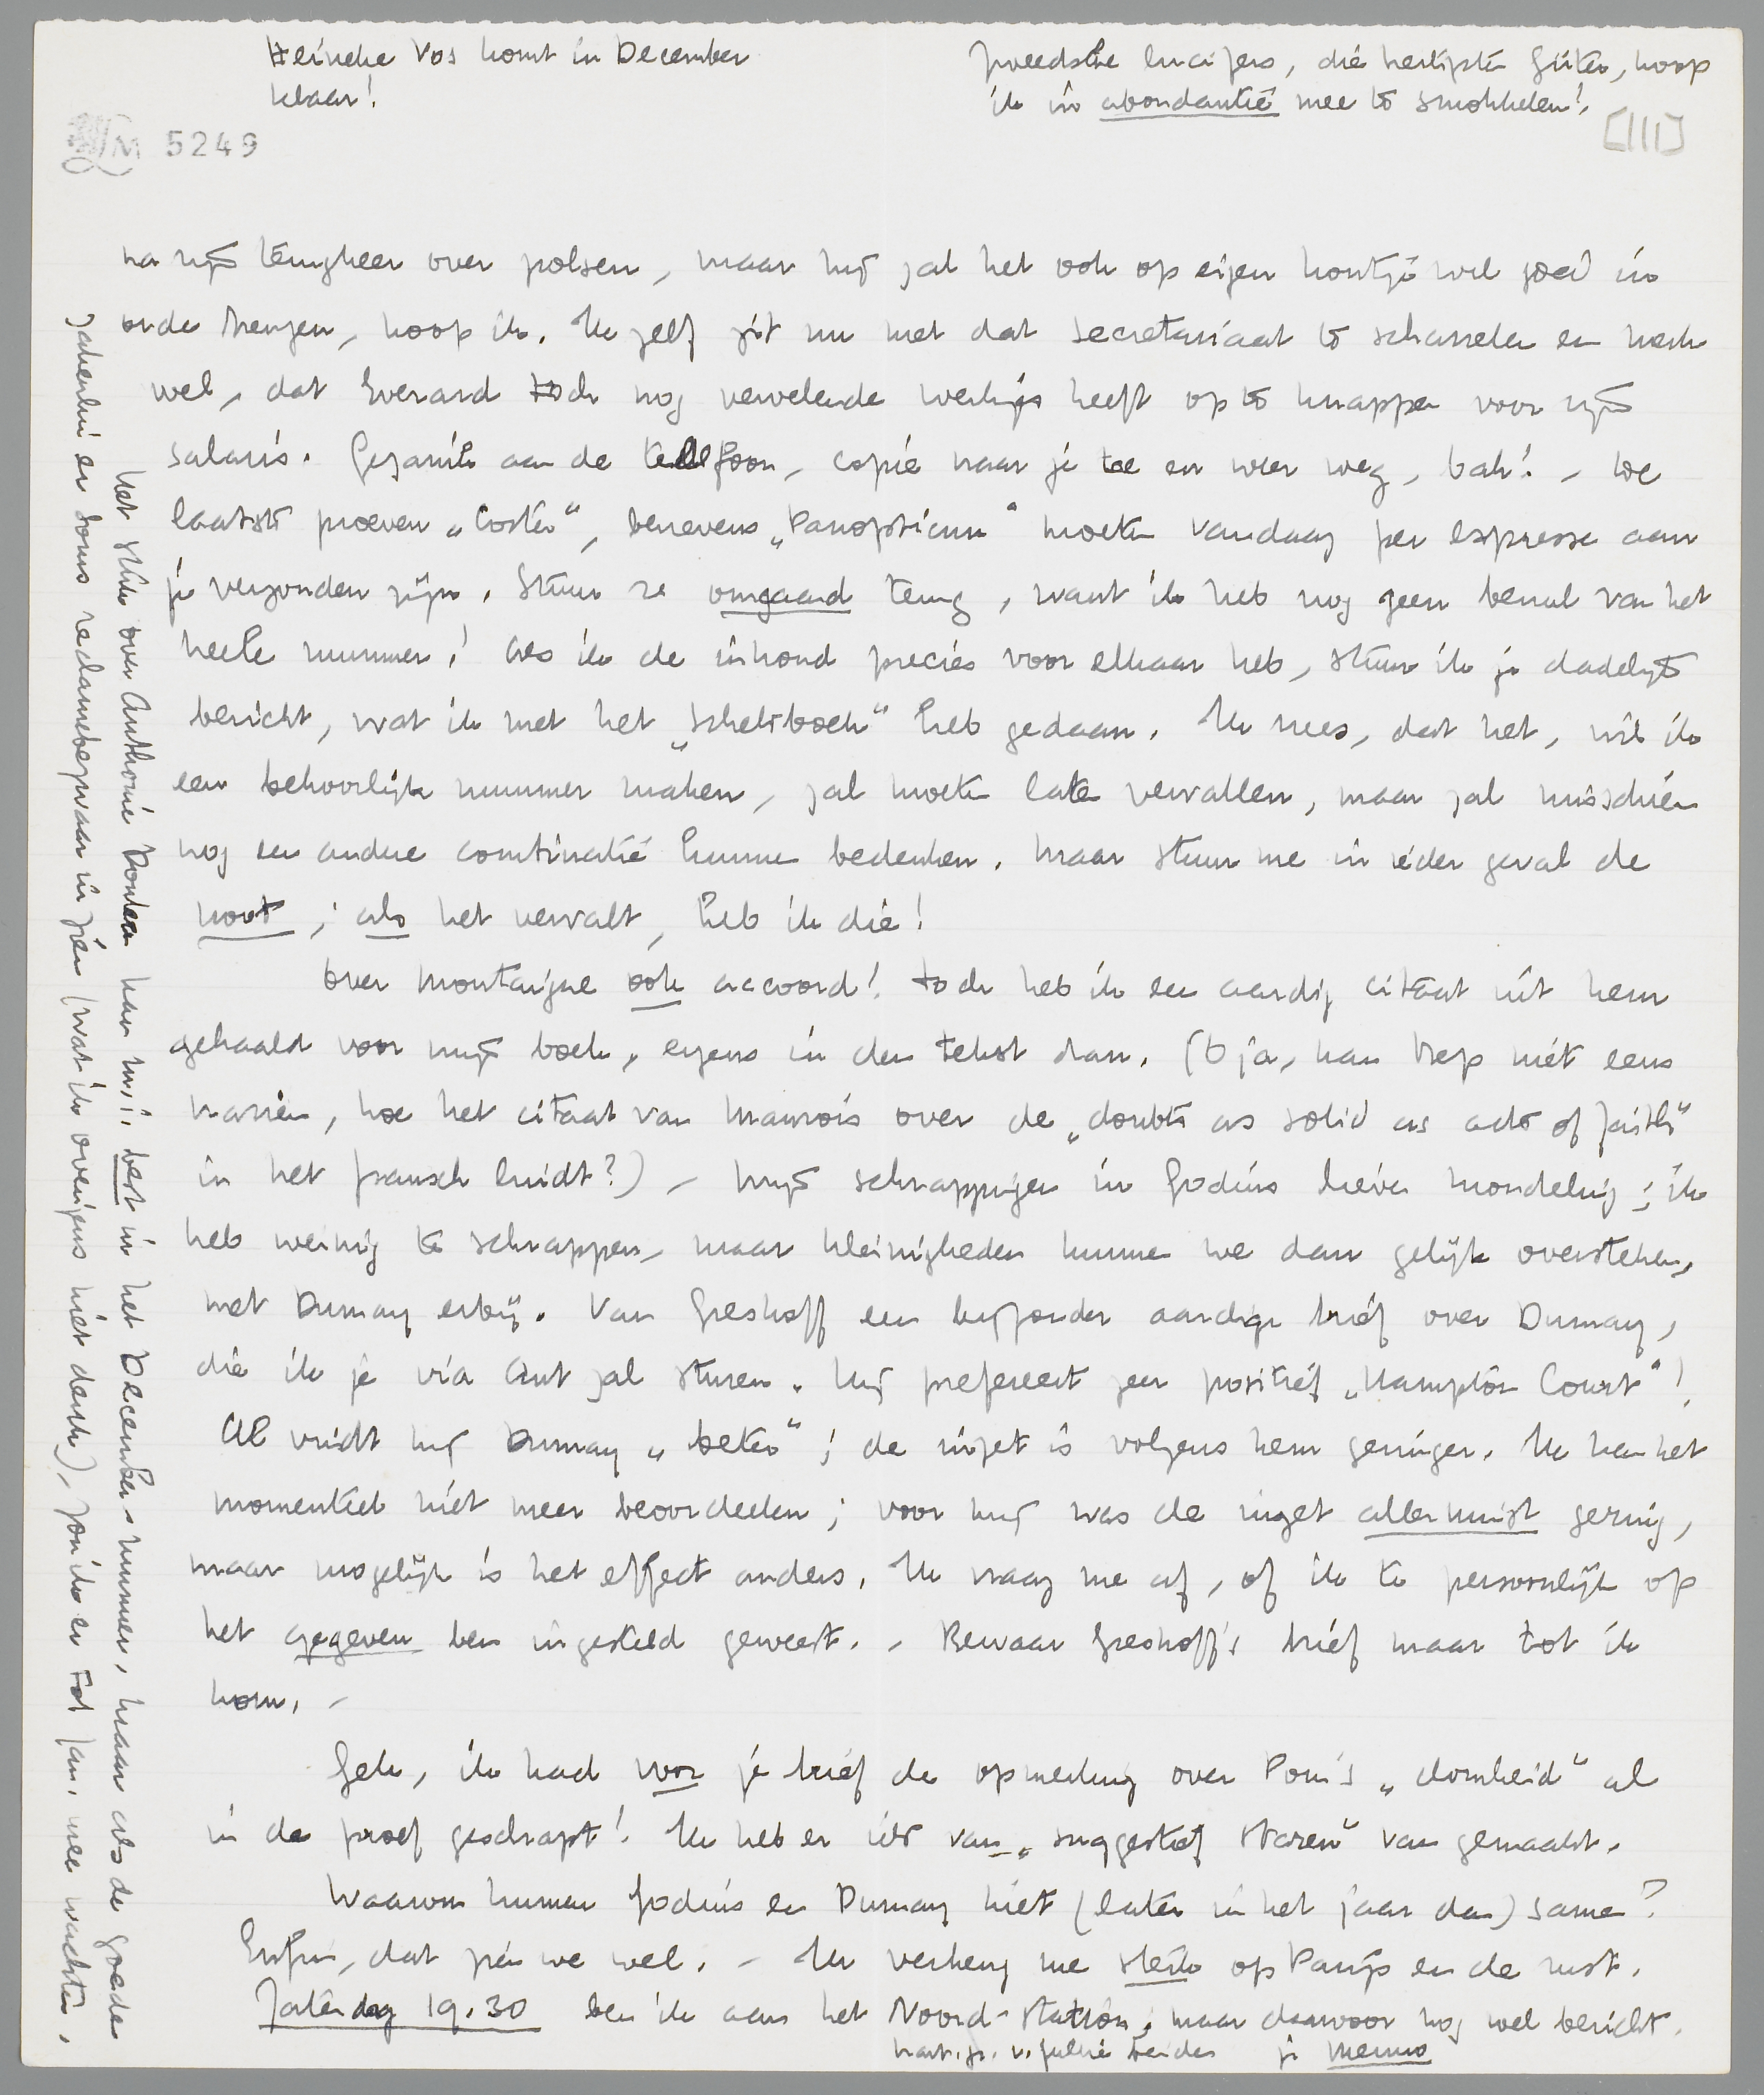 Heintje Vos komt in December
klaar!
Zweedsche lucifers, die heerlijkste Güter, hoop
ik in abondantie mee te smokkelen!
[III]
LM 5249
na zijn terugkeer over polsen, maar hij zal het ook op eigen houtje wel goed in
orde brengen, hoop ik. Ik zelf zit nu met dat secretariaat te scharrelen en merk
wel, dat Everard toch nog vervelende werkjes heeft op te knappen voor zijn
salaris. Gezanik aan de telefoon, copie naar je toe en weer weg, bah! – De
laatste proeven „Coster”, benevens „Panopticum” moeten vandaag per expresse aan
je verzonden zijn. Stuur ze omgaand terug, want ik heb nog geen benul van het
heele nummer! Als ik de inhoud precies voor elkaar heb, stuur ik je dadelijk
bericht, wat ik met het „schetsboek” heb gedaan. Ik vrees, dat het, wil ik
een behoorlijk nummer maken, zal moeten laten vervallen, maar zal misschien
nog een andere combinatie kunnen bedenken. Maar stuur me in ieder geval de
noot; als het vervalt, heb ik die!
Over Montaigne ook accoord! Toch heb ik een aardig citaat uit hem
gehaald voor mijn boek, ergens in den tekst dan. (O ja, kan Bep niet eens
nazien, hoe het citaat van Maurois over de „doubts as solid as acts of faith”
in het fransch luidt?) – Mijn schrappingen in Godius liever mondeling; ik
heb weinig te schrappen, maar kleinigheden kunnen we dan gelijk oversteken,
met Dumay erbij. Van Greshoff een bijzonder aardige brief over Dumay,
die ik je via Ant zal sturen. Hij prefereert zeer positief „Hampton Court”!
Al vindt hij Dumay „beter”; de inzet is volgens hem geringer. Ik kan het
momenteel niet meer beoordeelen; voor mij was de inzet allerminst gering,
maar mogelijk is het effect anders. Ik vraag me af, of ik te persoonlijk op
het gegeven ben ingesteld geweest. – Bewaar Greshoff's brief maar tot ik
kom. –
Gek, ik had voor je brief de opmerking over Pom's „domheid” al
in de proef geschrapt! Ik heb er iets van „suggestief staren” van gemaakt.
Waarom kunnen Godius en Dumay niet (later in het jaar dan) samen?
Enfin, dat zien we wel. – Ik verheug me sterk op Parijs en de rust.
Zaterdag 19.30 ben ik aan het Noord-station; maar daarvoor nog wel bericht.
hart. gr. v. jullie beiden je Menno
Het stuk over Anthonie Donker kan m.i. best in het December-nummer, maar als de goede
zakenlui er soms reclamebezwaar in zien (wat ik overigens niet denk), zou ik er tot Jan. mee wachten.